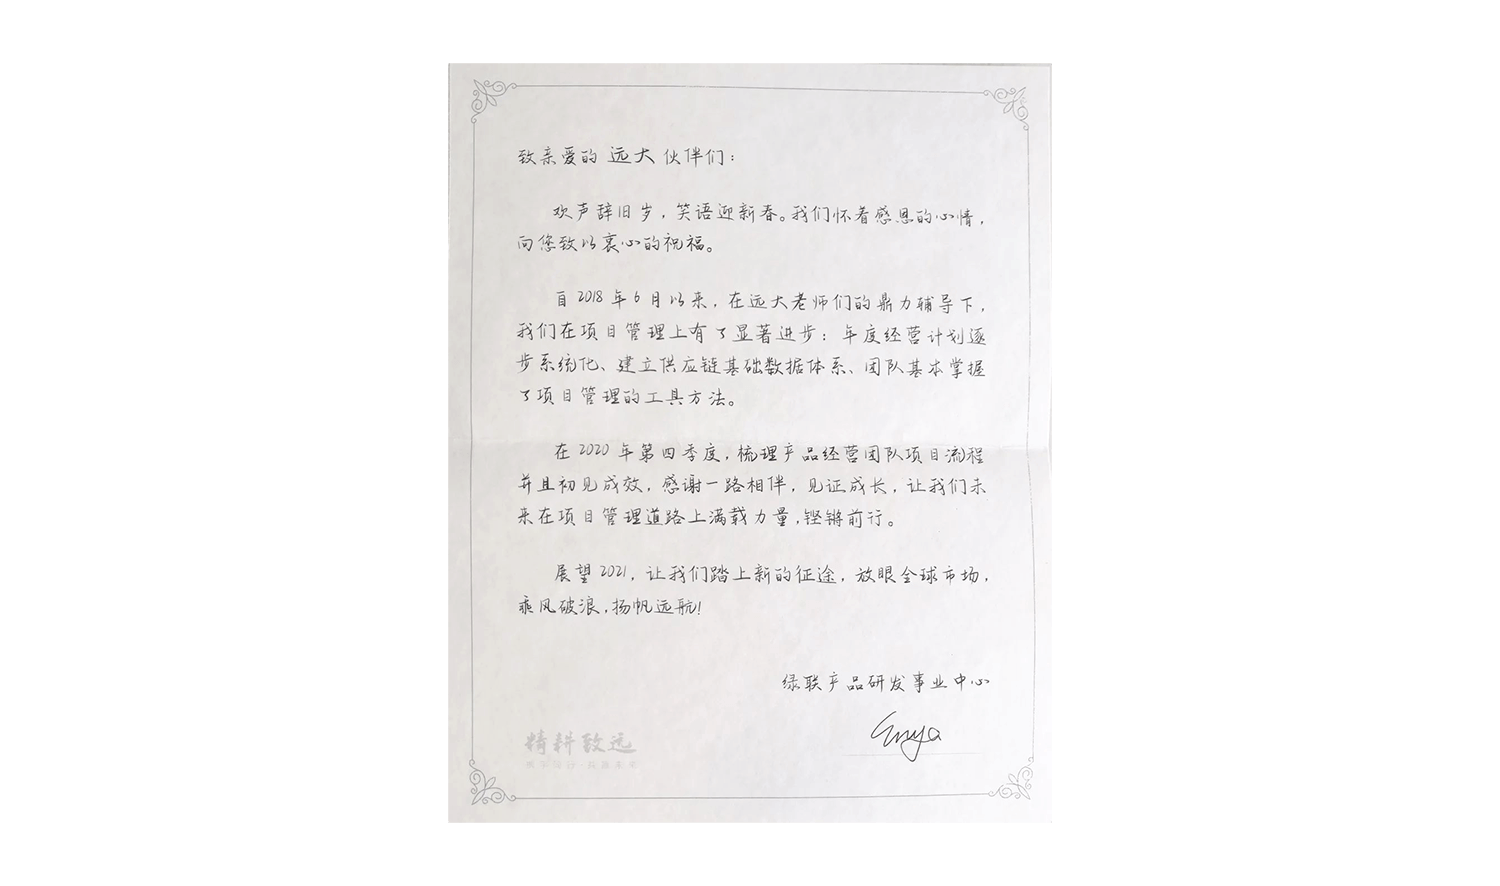 致亲爱的 远大 伙伴们：
欢声辞旧岁，笑语迎新春。我们怀着感恩的心情，
向您致以衷心的祝福。
自2018年6月以来，在远大老师们的鼎力辅导下，
我们在项目管理上有了显著进步：年度经营计划逐
步系统化、建立供应链基础数据体系、团队基本掌握
了项目管理的工具方法。
在2020年第四季度，梳理产品经营团队项目流程
并且初见成效，感谢一路相伴，见证成长，让我们未
来在项目管理道路上满载力量，铿锵前行。
展望2021，让我们踏上新的征途，放眼全球市场，
乘风破浪，扬帆远航！
绿联产品研发事业中心
Enya
精耕致远